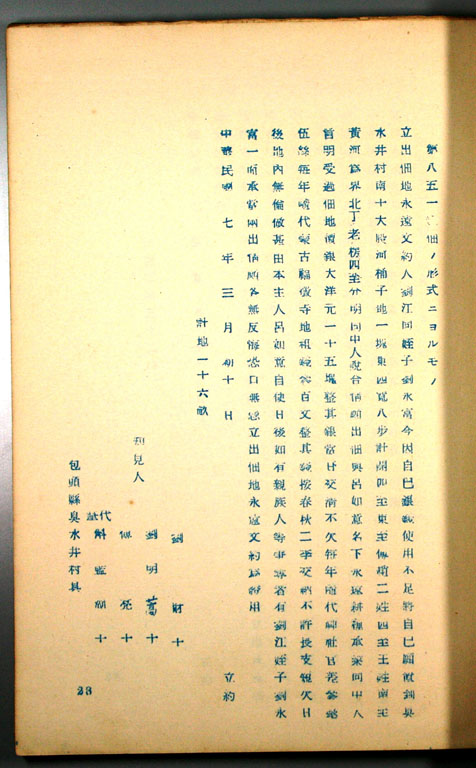 第八五 一、佃ノ形式ニヨルモノ
立出佃地永遠文約人劉江同姪子劉永富今因自己銀錢使用不足將自己圓㪚到臭
水井村南十大股河桶子地一塊東西寬八步計開卯至東至傅趙二姓西至王姓南至
黃河爲界北丁老楞四至分明同中人說合情願出佃與呂如意名下永遠耕種承業同中人
言明受過佃地價銀大洋元一十五塊整其銀當日交清不欠每年隨代神社官差參
伍每年隨代蒙古福徵寺地租錢百文整其錢按春秋二季交納不許長支短欠日
後地內無論做甚由本主人呂如意自使日後如有親族人等爭奪者有劉江姪子劉永
富一面承當兩出情願各無反悔恐口無憑立出佃地永遠文約爲證用
中華民國七年三月初十日 立約
計地一十六畝
知見人
劉財十
劉明萬十
傅亮十
代筆
包頭縣臭水井村具
23